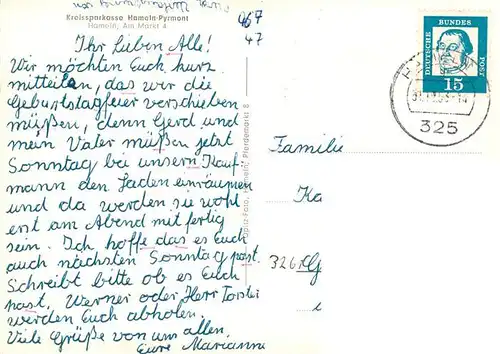 Kreissparkasse Hameln-Pyrmont
Hameln, Am Markt 4
47
Ihr Lieben Alle!
Wir möchten Euch kurz
mitteilen, das wir die
Geburtstagfeier verschieben
müßen, denn Gerd und
mein Vater müßen jetzt
Sonntag bei unsern Kauf-
mann den Laden einräumen
und da werden sie wohl
erst am Abend mit fertig
sein. Ich hoffe das es Euch
auch nächsten Sonntag past.
Schreibt bitte ob es Euch
past. Werner oder Herr
werden Euch abholen.
Viele Grüße von uns allen.
Eure Marianne
Foto, Hameln, Pferdemarkt 8
DEUTSCHE BUNDESPOST
15
325
Familie
Ka